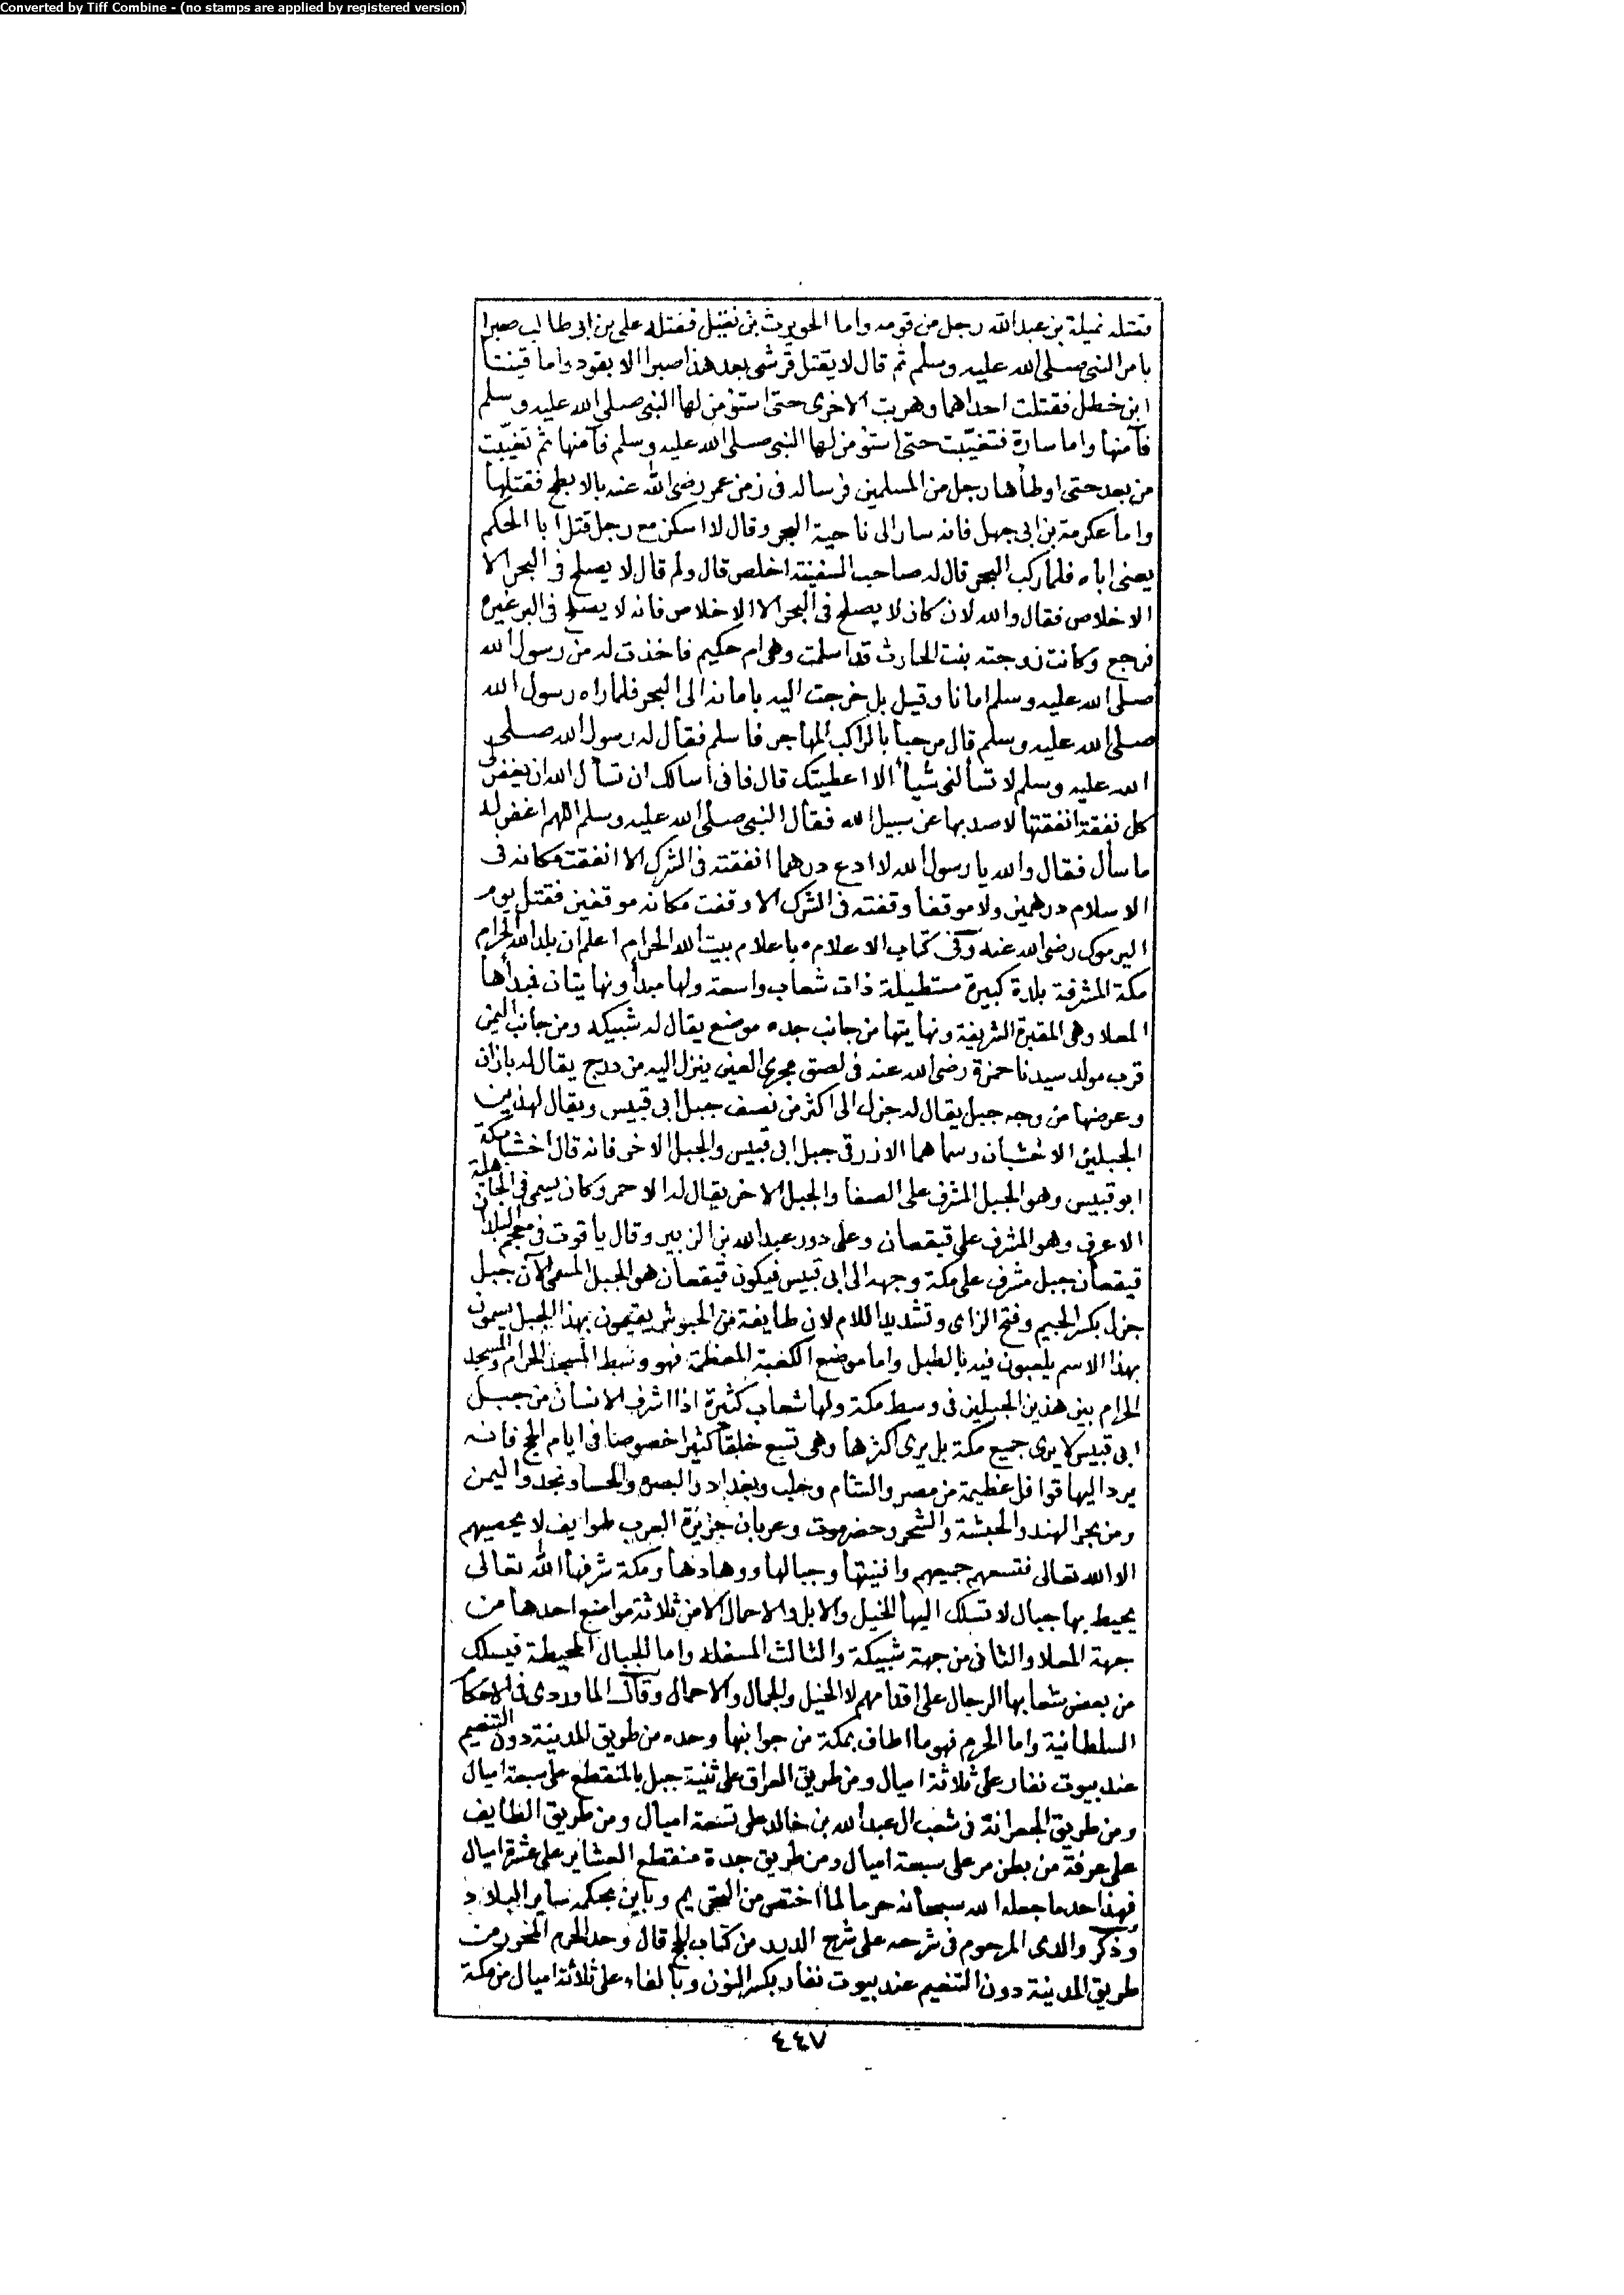 Converted by Tiff Combine - (no stamps are applied by registered version)
فقتله نميلة بن عبد الله رجل من قومه واما الحويرث بن نقيل فقتله على بن ابى طالب صبرا
بامر النبى صلى الله عليه وسلم ثم قال لا يقتل قرشى بعد هذا صبرا الا بقود واما قينتا
ابن خطل فقتلت احداهما وهربت الاخرى حتى استؤمن لها النبى صلى الله عليه وسلم
فآمنها واما سارة فتغيّبت حتى استؤمن لها النبى صلى الله عليه وسلم فآمنها ثم تغيّبت
من بعد حتى اوطأها رجل من المسلمين فرسا له فى زمن عمر رضى الله عنه بالابطح فقتلها
واما عكرمة بن ابى جهل فانه سار الى ناحية البحر وقال لا اسكن مع رجل قتل ابا الحكم
يعنى اباه فلما ركب البحر قال له صاحب السفينة اخلص قال ولم قال لا يصلح فى البحر الا
الاخلاص فقال والله لان كان لا يصلح فى البحر الا الاخلاص فانه لا يصلح فى البر غيره
فرجع وكانت زوجته بنت الحارث قد اسلمت وهى ام حكيم فاخذت له من رسول الله
صلى الله عليه وسلم امانا وقيل بل خرجت اليه بامانه الى البحر فلما راه رسول الله
صلى الله عليه وسلم قال مرحبا بالراكب المهاجر فاسلم فقال له رسول الله صلى
الله عليه وسلم لا تسألنى شيأ الا اعطيتك قال فانى اسالك ان تسأل الله ان يغفر لى
كل نفقة انفقتها لاصد بها عن سبيل الله فقال النبى صلى الله عليه وسلم اللهم اغفر له
ما سأل فقال والله يا رسول الله لا ادع درهما انفقته فى الشرك الا انفقت مكانه فى
الاسلام درهمين ولا موقفا وقفته فى الشرك الا وقفت مكانه موقفين فقتل يوم
اليرموك رضى الله عنه وفى كتاب الاعلام باعلام بيت الله الحرام اعلم ان بلد الله الحرام
مكة المشرفة بلدة كبيرة مستطيلة ذات شعاب واسعة ولها مبدأ ونهايتان فمبدأها
المعلا وهى المقبرة الشريفة ونهايتها من جانب جده موضع يقال له شبيكه ومن جانب اليمن
قرب مولد سيدنا حمزة رضى الله عنه فى لصق مجرى العين ينزل اليه من درج يقال له بازان
وعرضها من وجه جبل يقال له جزل الى اكثر من نصف جبل ابى قبيس ويقال لهذين
الجبلين الاخشبان وسماهما الازرقى جبل ابى قبيس والجبل الاخر فانه قال اخشبا مكة
ابو قبيس وهو الجبل المشرف على الصفا والجبل الاخر يقال له الاحمر وكان يسمى فى الجاهلية
الاعرف وهو المشرف على قيقعان وعلى دور عبد الله بن الزبير وقال ياقوت فى معجم البلدان
قيقعان جبل مشرف على مكة وجهه الى ابى قبيس فيكون قيقعان هو الجبل المسمى الآن جبل
جزل بكسر الجيم وفتح الزاى وتشديد اللام لان طايفة من الحبوش يقيمون بهذا الجبل يسمون
بهذا الاسم يلعبون فيه بالطبل واما موضع الكعبة المعظمة فهو وسط المسجد الحرام والمسجد
الحرام بين هذين الجبلين فى وسط مكة ولها شعاب كثيرة اذا اشرف الانسان من جبل
ابى قبيس لا يرى جميع مكة بل يرى اكثرها وهى تسع خلقا كثيرا خصوصا فى ايام الحج فانه
يرد اليها قوافل عظيمة من مصر والشام وحلب وبغداد والبصره والحسا ونجد واليمن
ومن بحر الهند والحبشة والشحر وحضرموت وعربان جزيرة العرب طوايف لا يحصيهم
الا الله تعالى فتسعهم جميعهم وافنيتها وجبالها ووهادها ومكة شرفها الله تعالى
يحيط بها جبال لا تسلك اليها الخيل والابل والاحمال الا من ثلاثة مواضع احدها من
جهة المعلا والثانى من جهة شبيكة والثالث المسفله واما الجبال المحيطة فيسلك
من بعض شعابها الرجال على اقدامهم لا الخيل والجمال والاحمال وقال الماوردى فى الاحكام
السلطانية واما الحرم فهو ما اطاف بمكة من جوانبها وحده من طريق المدينة دون التنعيم
عند بيوت نفار على ثلاثة اميال ومن طريق العراق على ثنية جبل بالمنقطع على سبعة اميال
ومن طريق الجعرانة فى شعب ال عبد الله بن خالد على تسعة اميال ومن طريق الطايف
على عرفة من بطن مر على سبعة اميال ومن طريق جدة منقطع العشاير على عشرة اميال
فهذا حد ما جعله الله سبحانه حرما لما اختص من التحريم وباين بحكمه ساير البلاد
وذكر والدى المرحوم فى شرحه على شرح الدرر من كتاب الحج قال وحد الحرم المخور من
طريق المدينة دون التنعيم عند بيوت نفار بكسر النون وبالفاء على ثلاثة اميال من مكة
٤٤٧